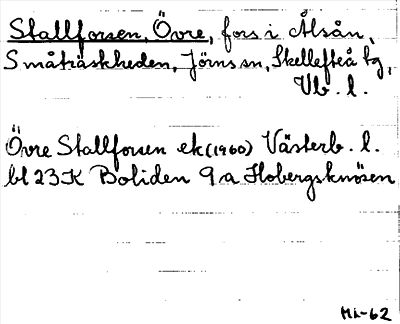 Stallforsen, Övre, fors i Ålsån,
Småträskheden, Jörns sn, Skellefteå tg,
Vb. l.
Övre Stallforsen ek (1960) Västerb. l.
bl 23K Boliden 9a Flobergsknösen
HL-62